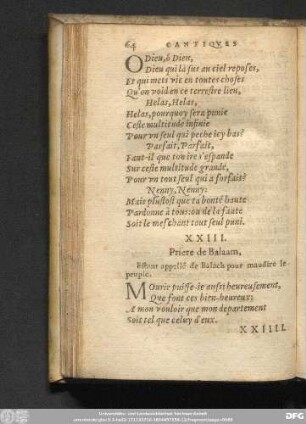 64 CANTIQVES
O Dieu, ô Dieu,
Dieu qui là sus au ciel reposes,
Et qui mets vie en toutes choses
Qu'on void en ce terrestre lieu,
Helas, Helas,
Helas, pourquoy sera punie
Ceste multitude infinie
Pour vn seul qui peche icy bas?
Parfait, Parfait,
Faut-il que ton ire s'espande
Sur ceste multitude grande,
Pour vn tout seul qui a forfait?
Nenny, Nenny:
Mais plustost que ta bonté haute
Pardonne à tous: ou de la faute
Soit le meschant tout seul puni.
XXIII.
Priere de Balaam,
Estant appellé de Balach pour maudire le
peuple.
MOurir puisse-ie aussi heureusement,
Que font ces bien-heureux:
A mon vouloir que mon departement
Soit tel que celuy d'eux.
XXIIII.
DFG